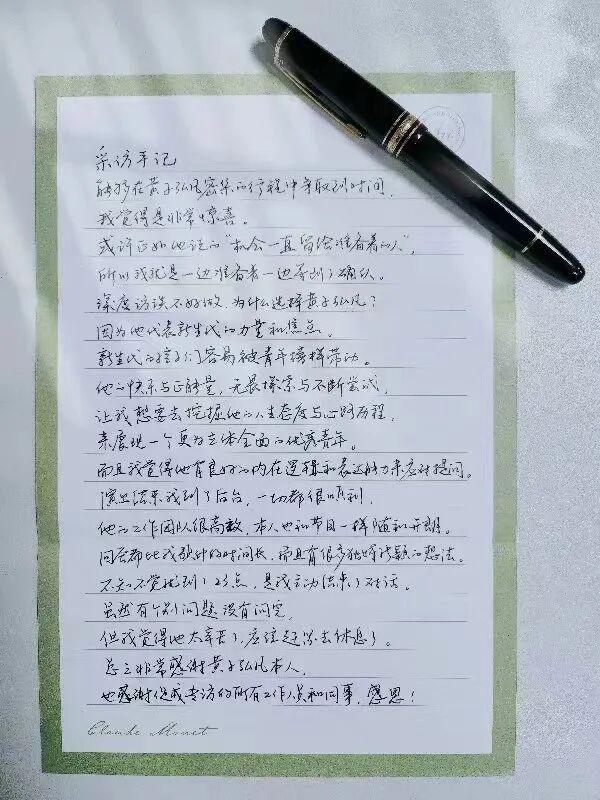 采访手记
能够在黄子弘凡密集的行程中争取到时间,
我觉得是非常惊喜。
或许正如他说的"机会一直留给准备着的人",
所以我就是一边准备着一边等到了确认。
深度访谈不好做,为什么选择黄子弘凡?
因为他代表新生代的力量和焦点。
新生代的孩子们容易被青年榜样带动。
他的快乐与正能量,无畏探索与不断尝试,
让我想要去挖掘他的人生态度与心路历程,
来展现一个更为立体全面的优秀青年。
而且我觉得他有良好的内在逻辑和表达能力来应对提问。
演出结束我到了后台,一切都很顺利,
他的工作团队很高效,本人也和节目一样随和开朗。
回答都比我预计的时间长,而且有很多独特新颖的想法。
不知不觉搞到了23点,是我主动结束了对话。
虽然有个别问题没有问完,
但我觉得他太辛苦了,应该赶紧去休息了。
总之非常感谢黄子弘凡本人,
也感谢促成专访的所有工作人员和同事,感恩!
Claude Monet